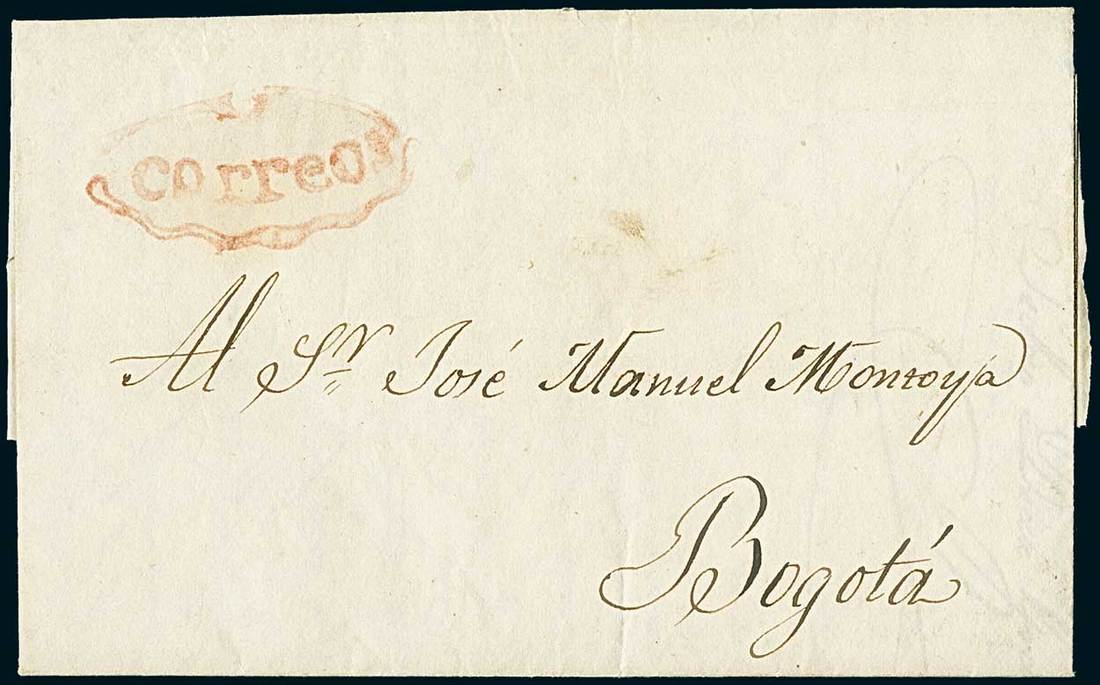 Correos
Al Sr José Manuel Montoya
Bogotá